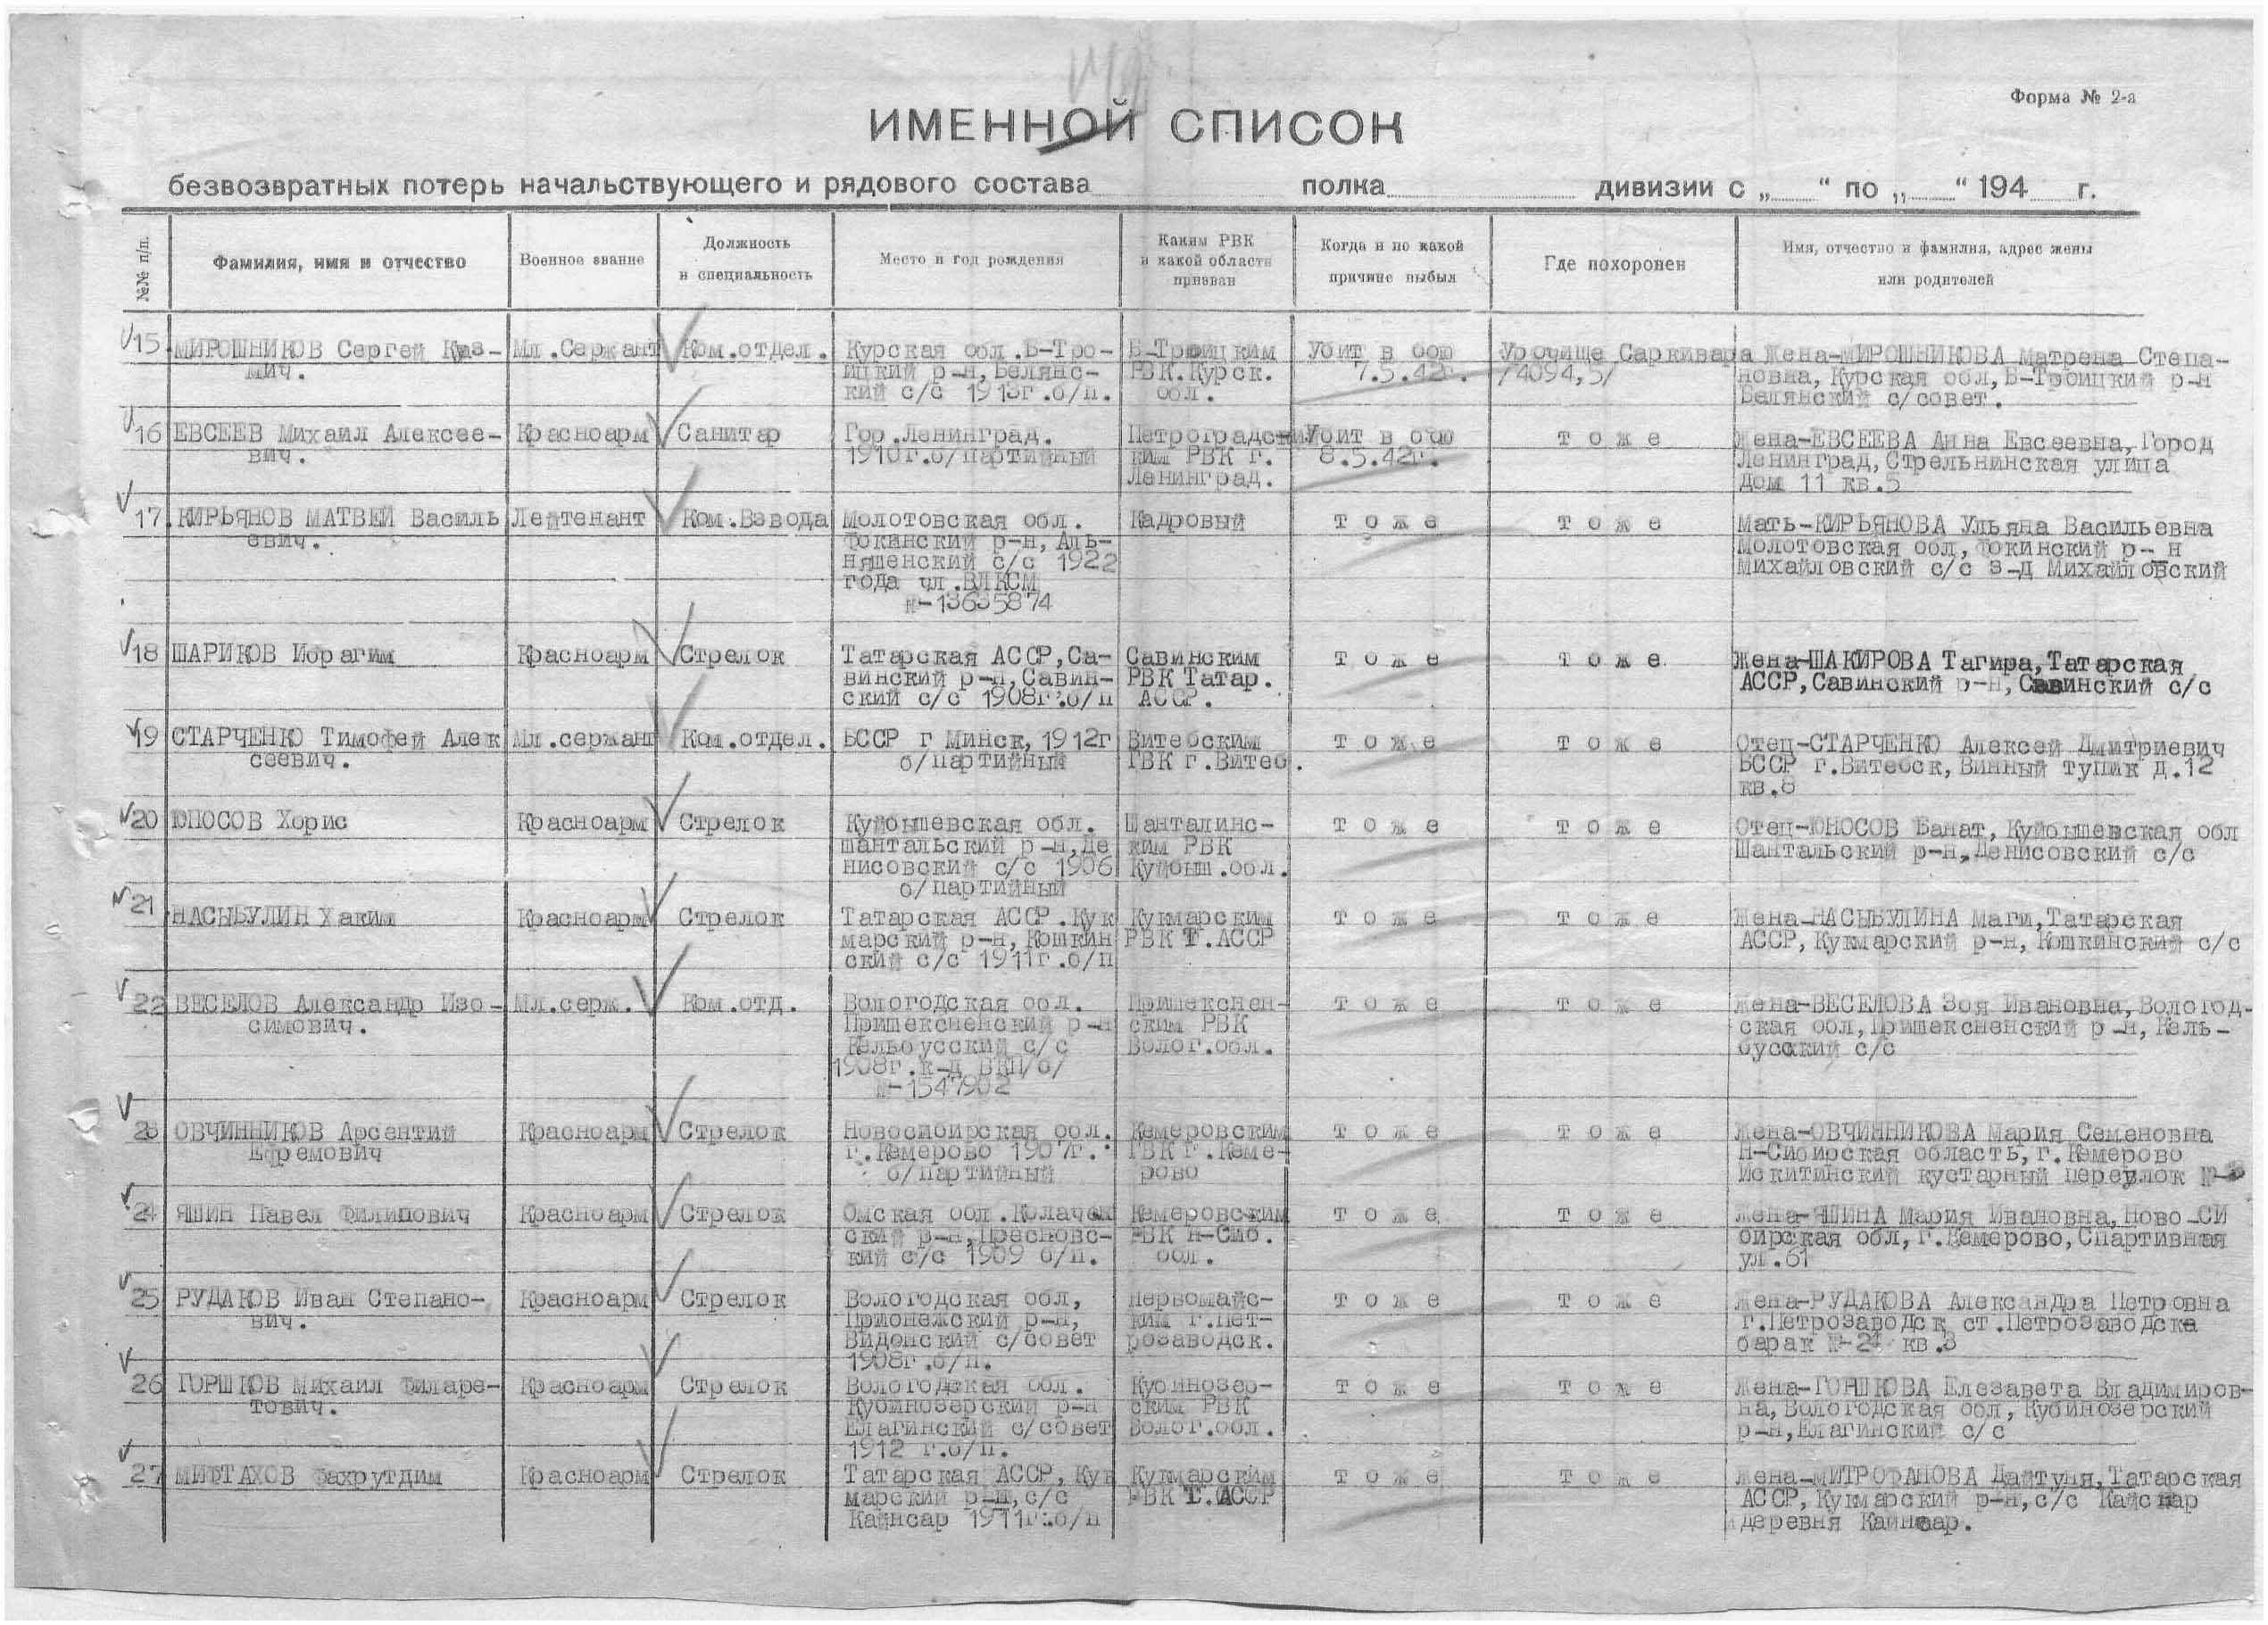 Форма № 2-а
ИМЕННОЙ СПИСОК
безвозвратных потерь начальствующего и рядового состава полка дивизии с „ “ по „ “ 194 г.
№№ п/п.
Фамилия, имя и отчество
Военное звание
Должность
и специальность
Место и год рождения
Каким РВК
и какой области
призван
Когда и по какой
причине выбыл
Где похоронен
Имя, отчество и фамилия, адрес жены
или родителей
15 МИРОШНИКОВ Сергей Куз- Мл.Сержант Ком.отдел. Курская обл.Б-Тро- Б-Троицким Убит в бою Урочище Саркивара Жена-МИРОШНИКОВА Матрена Степа-
мич. ицкий р-н,Белянс- РВК.Курск. 7.5.42г. /4094,5/ новна, Курская обл,Б-Троицкий р-н
кий с/с 1913г.б/п. обл. Белянский с/совет.
16 ЕВСЕЕВ Михаил Алексее- Красноарм Санитар Гор.Ленинград. Петроградским Убит в бою т о ж е Жена-ЕВСЕЕВА Анна Евсеевна,Город
вич. 1910г.б/партийный ким РВК г. 8.5.42г. Ленинград,Стрельнинская улица
Ленинград. Дом 11 кв.5
17 КИРЬЯНОВ МАТВЕЙ Василь Лейтенант Ком.Взвода Молотовская обл. Кадровый т о ж е т о ж е Мать-КИРЬЯНОВА Ульяна Васильевна
евич. Фокинский р-н, Аль- Молотовская обл,Фокинский р-н
няшенский с/с 1922 Михайловский с/с з-д Михайловский
года чл.ВЛКСМ
№-13635874
18 ШАРИКОВ Ибрагим Красноарм Стрелок Татарская АССР,Са- Савинским т о ж е т о ж е Жена-ШАКИРОВА Тагира,Татарская
винский р-н,Савин- РВК Татар. АССР,Савинский р-н,Савинский с/с
ский с/с 1908г.б/п АССР.
19 СТАРЧЕНКО Тимофей Алек Мл.сержант Ком.отдел. БССР г Минск,1912г Витебским т о ж е т о ж е Отец-СТАРЧЕНКО Алексей Дмитриевич
сеевич. б/партийный ГВК г.Витеб. БССР г.Витебск,Винный тупик д.12
кв.8
20 ЮНОСОВ Хорис Красноарм Стрелок Куйбышевская обл. Шанталинс- т о ж е т о ж е Отец-ЮНОСОВ Банат,Куйбышевская обл
Шантальский р-н,Де ким РВК Шантальский р-н,Денисовский с/с
нисовский с/с 1906 Куйбыш.обл.
б/партийный
21 НАСЫБУЛИН Хаким Красноарм Стрелок Татарская АССР.Кук Кукмарским т о ж е т о ж е Жена-НАСЫБУЛИНА Маги,Татарская
марский р-н,Кошкин РВК Т.АССР АССР,Кукмарский р-н,Кошкинский с/с
ский с/с 1911г.б/п
22 ВЕСЕЛОВ Александр Изо- Мл.серж. Ком.отд. Вологодская обл. Пришекснен- т о ж е т о ж е Жена-ВЕСЕЛОВА Зоя Ивановна,Вологод-
симович. Пришексненский р-н ским РВК ская обл,Пришексненский р-н, Кель-
Кельбусский с/с Волог.обл. бусский с/с
1908г.к-д ВКП/б/
№-1547902
23 ОВЧИННИКОВ Арсентий Красноарм Стрелок Новосибирская обл. Кемеровским т о ж е т о ж е Жена-ОВЧИННИКОВА Мария Семеновна
Ефремович г.Кемерово 1907г. ГВК г.Кеме- Н-Сибирская область,г.Кемерово
б/партийный рово Искитинский кустарный переулок №-
24 ЯШИН Павел Филипович Красноарм Стрелок Омская обл.Колачен Кемеровским т о ж е т о ж е Жена-ЯШИНА Мария Ивановна,Ново-СИ
ский р-н,Пресновс- РВК Н-Сиб. бирская обл,г.Кемерово,Спартивная
кий с/с 1909 б/п. обл. ул.61
25 РУДАКОВ Иван Степано- Красноарм Стрелок Вологодская обл, Первомайс- т о ж е т о ж е Жена-РУДАКОВА Александра Петровна
вич. Прионежский р-н, ким г.Пет- г.Петрозаводск ст.Петрозаводска
Видонский с/совет розаводск. барак №-24 кв.3
1908г.б/п.
26 ГОРШКОВ Михаил Филаре- Красноарм Стрелок Вологодская обл. Кубинозер- т о ж е т о ж е Жена-ГОРШКОВА Елезавета Владимиров-
тович. Кубинозерский р-н ским РВК на,Вологодская обл,Кубинозерский
Елагинский с/совет Волог.обл. р-н,Елагинский с/с
1912 г.б/п.
27 МИФТАХОВ Фахрутдим Красноарм Стрелок Татарская АССР,Кук Кукмарским т о ж е т о ж е Жена-МИТРОФАНОВА Дайтуня,Татарская
марский р-н,с/с РВК Т.АССР АССР,Кукмарский р-н,с/с Кайсар
Кайнсар 1911г.б/п деревня Кайнсар.